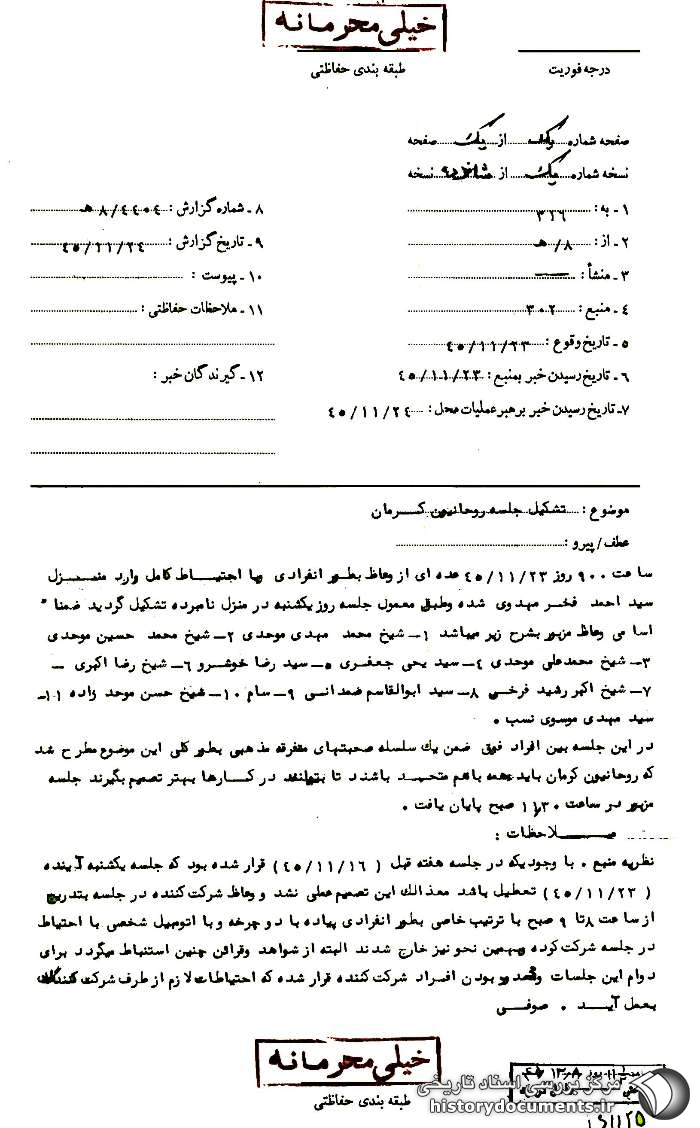 خیلی محرمانه
طبقه بندی حفاظتی
درجه فوریت
صفحه شماره یک از یک صفحه
نسخه شماره یک از نسخه
۱ - به : ۳۱۶
۲ - از : ۸/ هـ
۳ - منشأ :
۴ - منبع : ۳۰۲
۵ - تاریخ وقوع : ۴۵/۱۱/۲۳
۶ - تاریخ رسیدن خبر بمنبع : ۴۵/۱۱/۲۳
۷ـ تاریخ رسیدن خبر برهبر عملیات محل : ۴۵/۱۱/۲۴
۸ - شماره گزارش : ۸/۴۴۰۴ هـ
۹ - تاریخ گزارش : ۴۵/۱۱/۲۴
۱۰ - پیوست :
۱۱ - ملاحظات حفاظتی :
۱۲ - گیرندگان خبر :
موضوع : تشکیل جلسه روحانیون کرمان
عطف/ پیرو :
ساعت ۹۰۰ روز ۴۵/۱۱/۲۳ عده ای از وعاظ بطور انفرادی وبا احتیاط کامل وارد منزل
سید احمد فخر مهدوی شده وطبق معمول جلسه روز یکشنبه در منزل نامبرده تشکیل گردید ضمنا"
اسامی وعاظ مزبور بشرح زیر میباشد ۱ـ شیخ محمد مهدی موحدی ۲ـ شیخ محمد حسین موحدی
۳ـ شیخ محمدعلی موحدی ۴ـ سید یحی جعفری ۵ـ سید رضا خوشرو ۶ـ شیخ رضا اکبری ـ
۷ـ شیخ اکبر رشید فرخی ۸ـ سید ابوالقاسم صمدانی ۹ـ سام ۱۰ـ شیخ حسن موحد زاده ۱۱ـ
سید مهدی موسوی نسب .
در این جلسه بین افراد فوق ضمن یک سلسله صحبتهای متفرقه مذهبی بطور کلی این موضوع مطرح شد
که روحانیون کرمان باید همه باهم متحد باشند تا بتوانند در کارها بهتر تصمیم بگیرند جلسه
مزبور در ساعت ۱۱۳۰ صبح پایان یافت .
ملاحظات :
نظریه منبع . با وجودیکه در جلسه هفته قبل ( ۴۵/۱۱/۱۶ ) قرار شده بود که جلسه یکشنبه آینده
( ۴۵/۱۱/۲۳ ) تعطیل باشد معذالک این تصمیم عملی نشد و وعاظ شرکت کننده در جلسه بتدریج
از ساعت ۸ تا ۹ صبح با ترتیب خاصی بطور انفرادی پیاده با دوچرخه و با اتومبیل شخصی با احتیاط
در جلسه شرکت کرده وبهمین نحو نیز خارج شدند البته از شواهد وقرائن چنین استنباط میگردد برای
دوام این جلسات بودن افراد شرکت کننده قرار شده که احتیاطات لازم از طرف شرکت کنندگان
بعمل آید . صوفی
خیلی محرمانه
طبقه بندی حفاظتی
مرکز بررسی اسناد تاریخی
historydocuments.ir